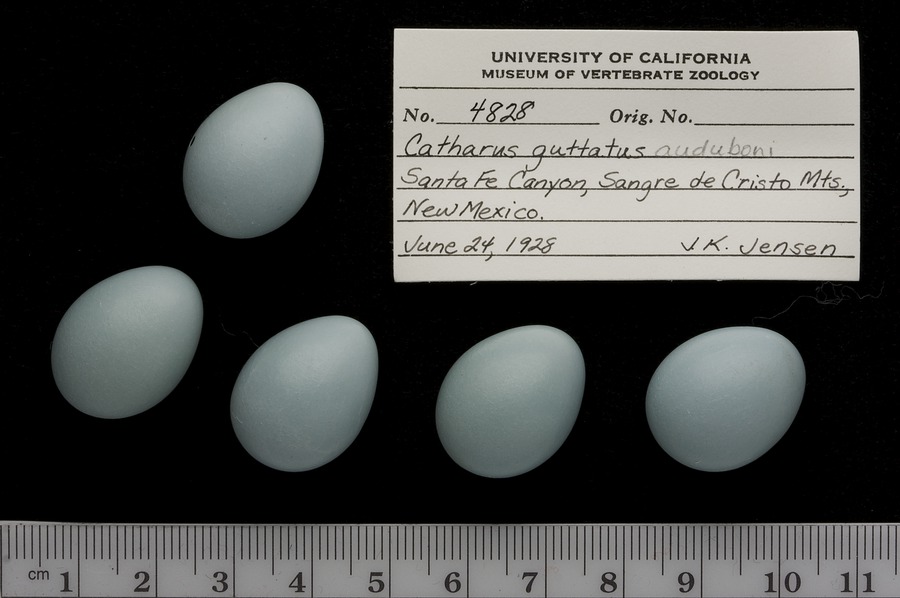 UNIVERSITY OF CALIFORNIA
MUSEUM OF VERTEBRATE ZOOLOGY
No. 4828 Orig. No.
Catharus guttatus auduboni
Santa Fe Canyon, Sangre de Cristo Mts.,
New Mexico.
June 24, 1928 J.K. Jensen
cm 1 2 3 4 5 6 7 8 9 10 11